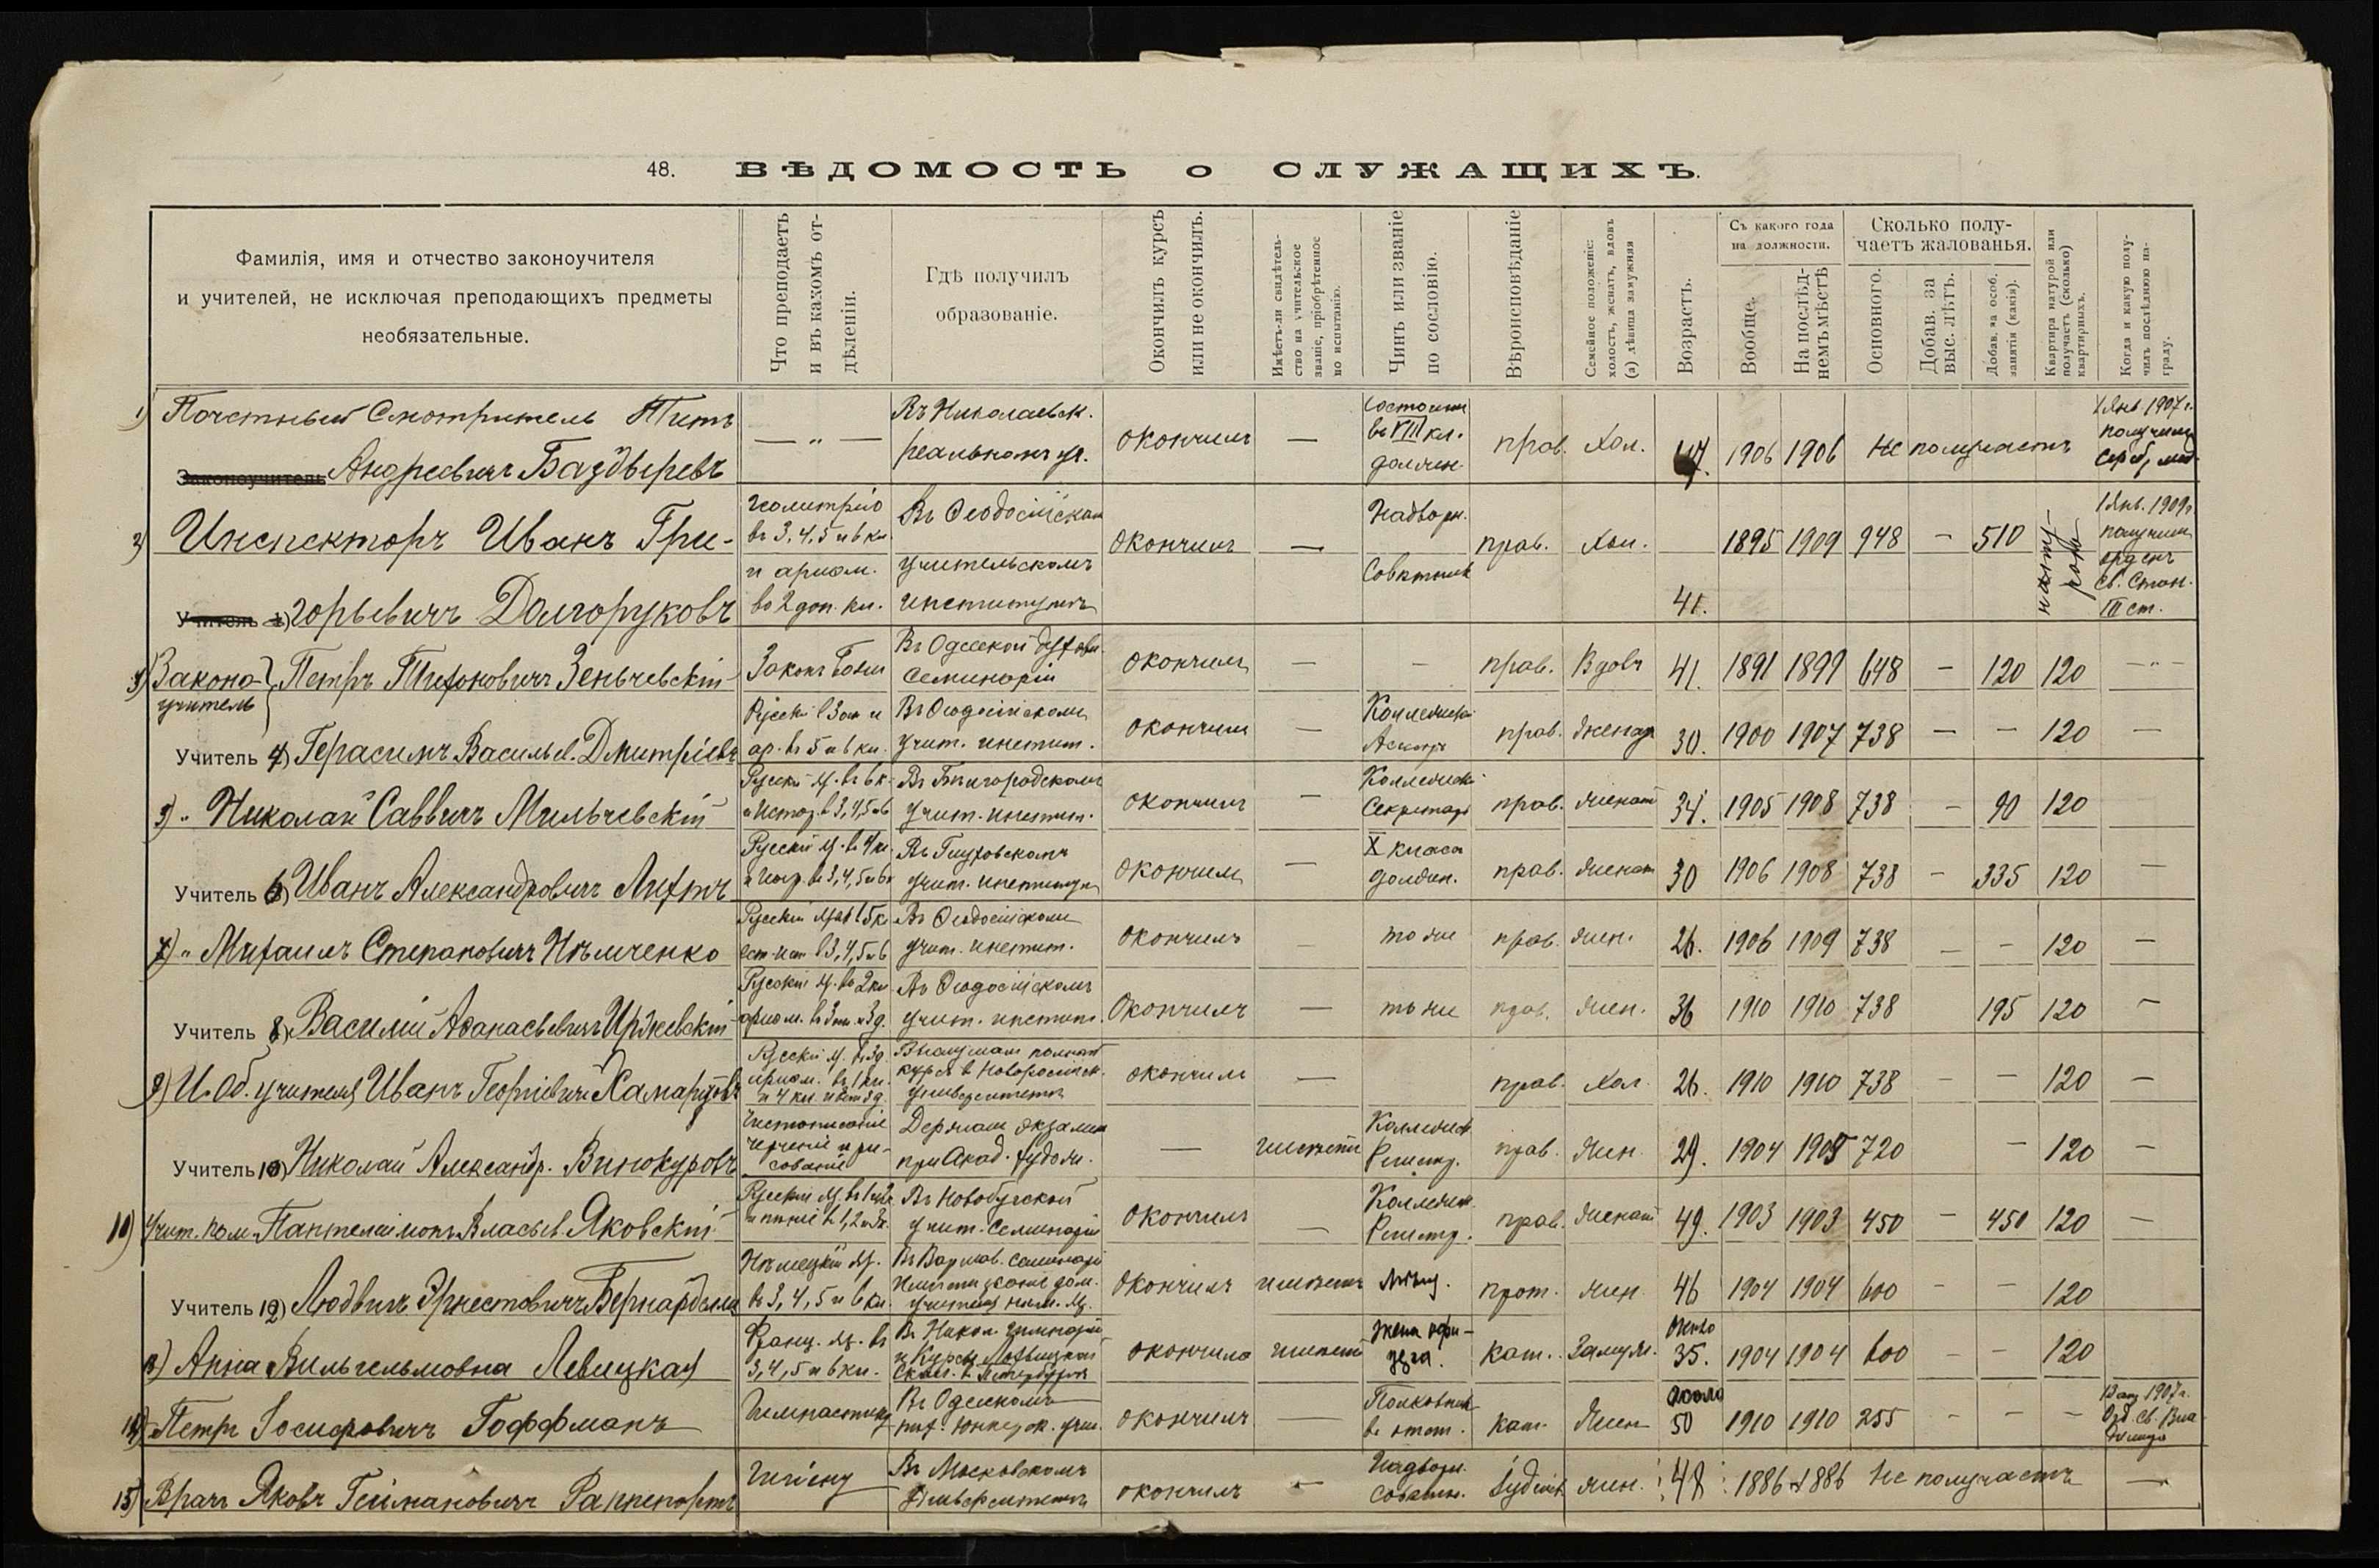 48. ВѢДОМОСТЬ о СЛУЖАЩИХЪ.
Фамилія, имя и отчество законоучителя
и учителей, не исключая преподающихъ предметы
необязательные.
Что преподаетъ
и въ какомъ от-
дѣленіи.
Гдѣ получилъ
образованіе.
Окончилъ курсъ
или не окончилъ.
Имѣетъ-ли свидѣтель-
ство на учительское
званіе, пріобрѣтенное
по испытанію.
Чинъ или званіе
по сословію.
Вѣроисповѣданіе
Семейное положеніе:
холостъ, женатъ, вдовъ
(а) дѣвица замужняя
Возрастъ.
Съ какого года
на должности.
Вообще.
На послѣд-
немъ мѣстѣ
Сколько полу-
чаетъ жалованья.
Основного.
Добав. за
выс. лѣтъ.
Добав. за особ.
занятія (какія).
Квартира натурой или
получаетъ (сколько)
квартирныхъ.
Когда и какую полу-
чилъ послѣднюю на-
граду.
1) Почетный Смотритель Титъ
Законоучитель Андреевичъ Баздыревъ
— „ —
Въ Николаевск.
реальномъ уч.
окончилъ — Состоитъ
въ VIII кл.
должн.
прав. Хол. 47. 1906 1906 Не получаетъ
1 Янв. 1907 г.
получилъ
сереб. мед.
2) Инспекторъ Иванъ Гри-
Учитель горьевичъ Долгоруковъ
Геометрію
въ 3, 4, 5 и 6 кл.
и ариѳм.
во 2 доп. кл.
Въ Ѳеодосійскомъ
учительскомъ
институтѣ
окончилъ — Надворн.
Совѣтникъ
прав. Хол. 41. 1895 1909 948 — 510 нату-
рой
1 Янв. 1909 г.
получилъ
орденъ
Св. Стан.
III ст.
3) Законо-
учитель Петръ Тихоновичъ Зеньчевскій
Законъ Божій
Въ Одесской духовн.
Семинаріи
окончилъ — — прав. Вдовъ 41. 1891 1899 648 — 120 120 — „ —
Учитель 4) Герасимъ Васильев. Дмитріевъ
ар. въ 5 и 6 кл.
Въ Ѳеодосійскомъ
учит. инстит.
окончилъ — Коллежскій
Асессоръ
прав. женат 30. 1900 1907 738 — — 120 —
5) „ Николай Саввичъ Мильчевскій
Русскій яз. въ 6 к.
и Истор. в 3, 4, 5 и 6
Въ Бѣлгородскомъ
учит. инстит.
окончилъ — Коллежскій
Секретарь
прав. женатъ 34. 1905 1908 738 — 90 120 —
Учитель 6) Иванъ Александровичъ Лихтъ
Русскій яз. в 4 кл.
и Геогр. в 3, 4, 5 и 6 к
Въ Глуховскомъ
учит. институтѣ
окончилъ — X класа
должн.
прав. женат 30 1906 1908 738 — 335 120 —
7) „ Михаилъ Степановичъ Нѣмченко
Русскій яз. в 5 к.
ест. ист. в 3, 4, 5 и 6
Въ Ѳеодосійскомъ
учит. инстит.
окончилъ — то же прав. жен. 26. 1906 1909 738 — — 120 —
Учитель 8) Василій Аѳанасьевичъ Иржевскій
Русскій яз. во 2 кл
Въ Ѳеодосійскомъ
учит. инстит.
Окончилъ — то же прав. жен. 36 1910 1910 738 195 120 —
9) И. об. учителя Иванъ Георгіевичъ Хамарзовъ
Русскій яз. в 3 д.
ариѳм. въ 1 кл.
Выслушалъ полный
курсъ в Новороссійск.
университетѣ
окончилъ — прав. Хол. 26. 1910 1910 738 — — 120 —
Учитель 10) Николай Александр. Винокуровъ
Чистописаніе
черченіе и ри-
сованіе
Держалъ экзаменъ
при Акад. худож.
— имѣетъ Коллежск.
Регистр.
прав. жен. 29. 1904 1905 720 — 120 —
11) Учит. пом. Пантелеймонъ Власьев. Яковскій
и пѣніе в 1, 2 и 3 к.
Въ Новобугской
учит. Семинаріи
окончилъ — Коллежск.
Регистр.
прав. женатъ 49. 1903 1903 450 — 450 120 —
Учитель 12) Людвигъ Эрнестовичъ Бернардели
Нѣмецкій яз.
въ 3, 4, 5 и 6 кл.
Въ Варшав. семинаріи
учителя нѣм. яз.
Окончилъ имѣетъ прот. жен. 46 1904 1904 600 — — 120
13) Анна Вильгельмовна Левицкая
Франц. яз. въ
3, 4, 5 и 6 кл.
Въ Никол. гимназіи
окончила имѣетъ жена офи-
цера.
кат. Замуж. около
35. 1904 1904 600 — — 120
14) Петръ Іосифовичъ Гоффманъ
Гимнастику
Въ Одесскомъ
пѣх. юнкерск. учил.
окончилъ — Полковникъ
в отст.
кат. жен. около
50 1910 1910 255 — — —
15) Врачъ Яковъ Геймановичъ Раппепортъ
Гигіену
Въ Московскомъ
Университетѣ
окончилъ — Надворн.
Совѣтн.
іудейск. жен. 48 1886 1886 Не получаетъ —